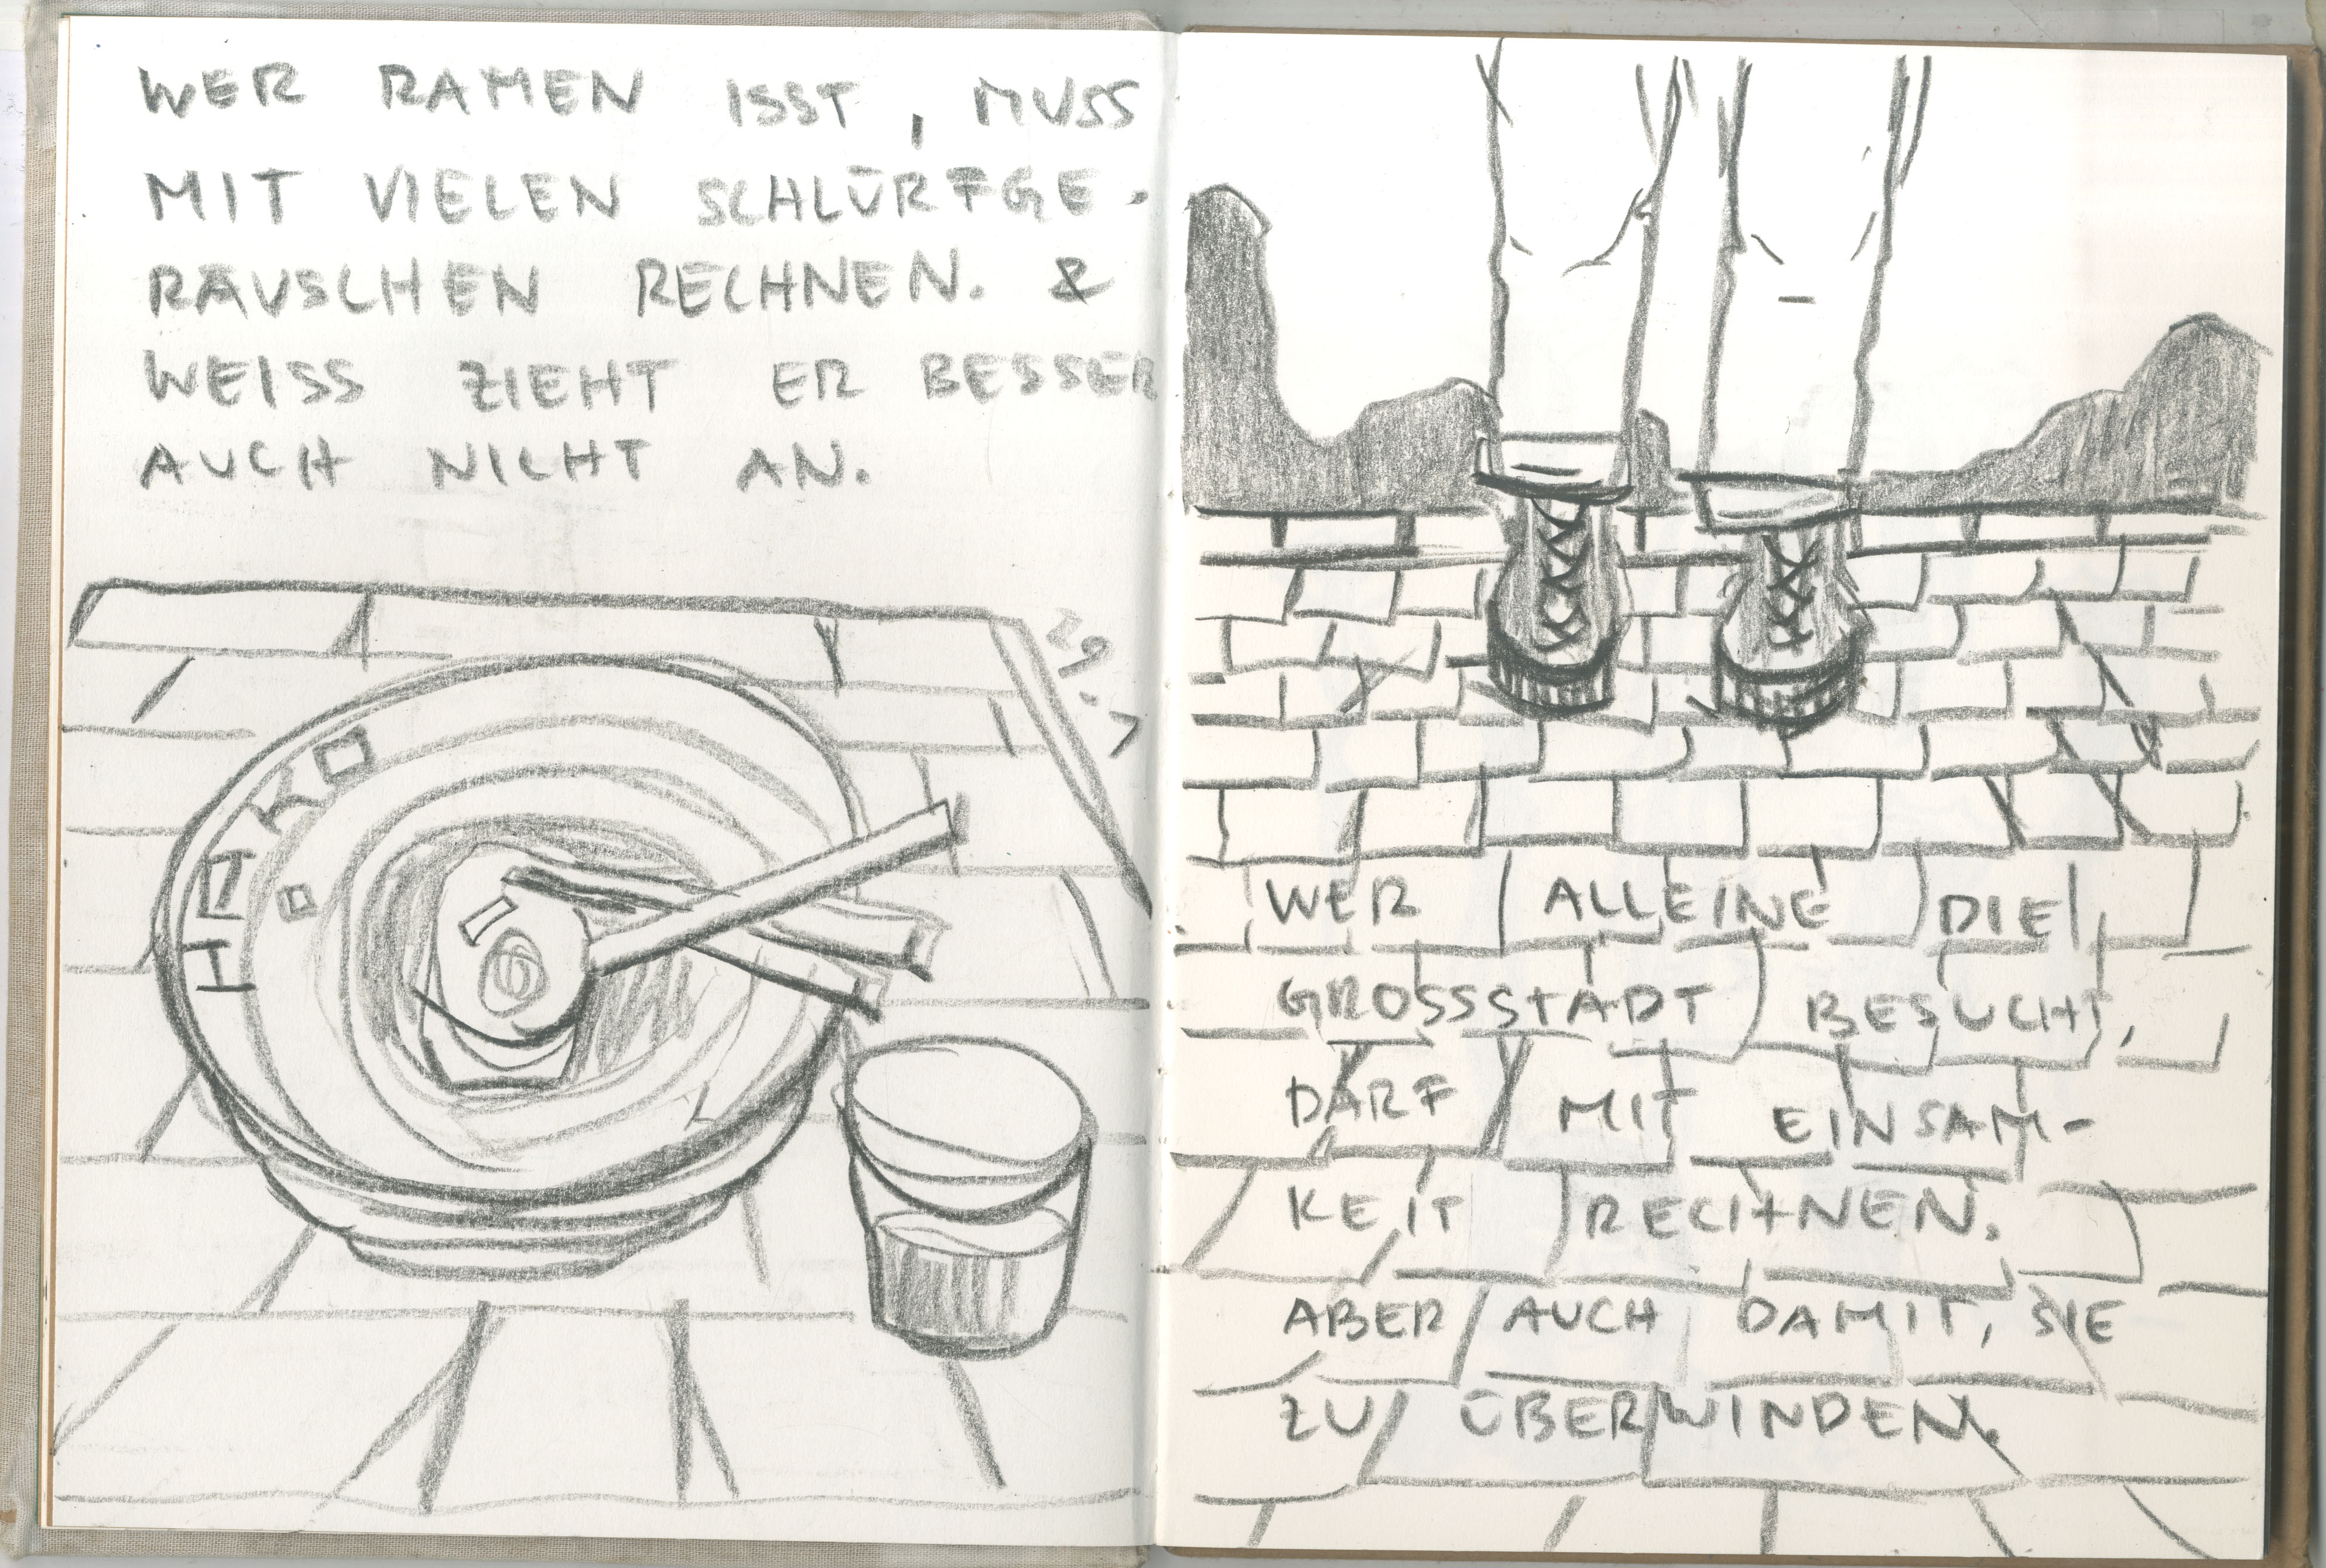 WER RAMEN ISST, MUSS
MIT VIELEN SCHLÜRFGE-
RÄUSCHEN RECHNEN. &
WEISS ZIEHT ER BESSER
AUCH NICHT AN.
29.7
HAKO
WER ALLEINE DIE
GROSSSTADT BESUCHT,
DARF MIT EINSAM-
KEIT RECHNEN.
ABER AUCH DAMIT, SIE
ZU ÜBERWINDEN.